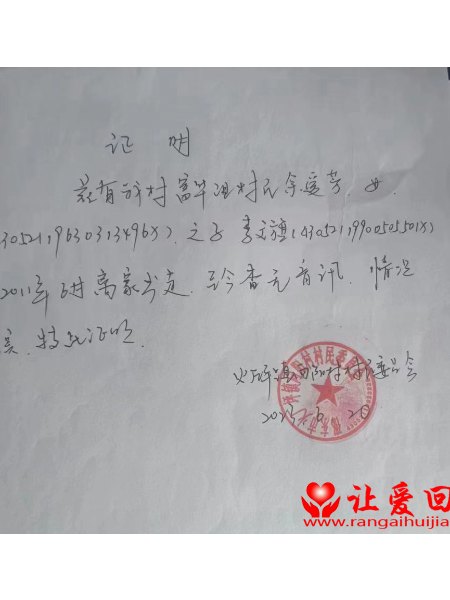 证明
兹有我村富华组村民余爱芳 女
30521196303134968X). 之子 李文旗(43052119900505501X)
2011年6月离家出走. 至今杳无音讯. 情况
实. 特此证明.
村村民委员会
2023.6.20
让爱回
www.rangaihuijia